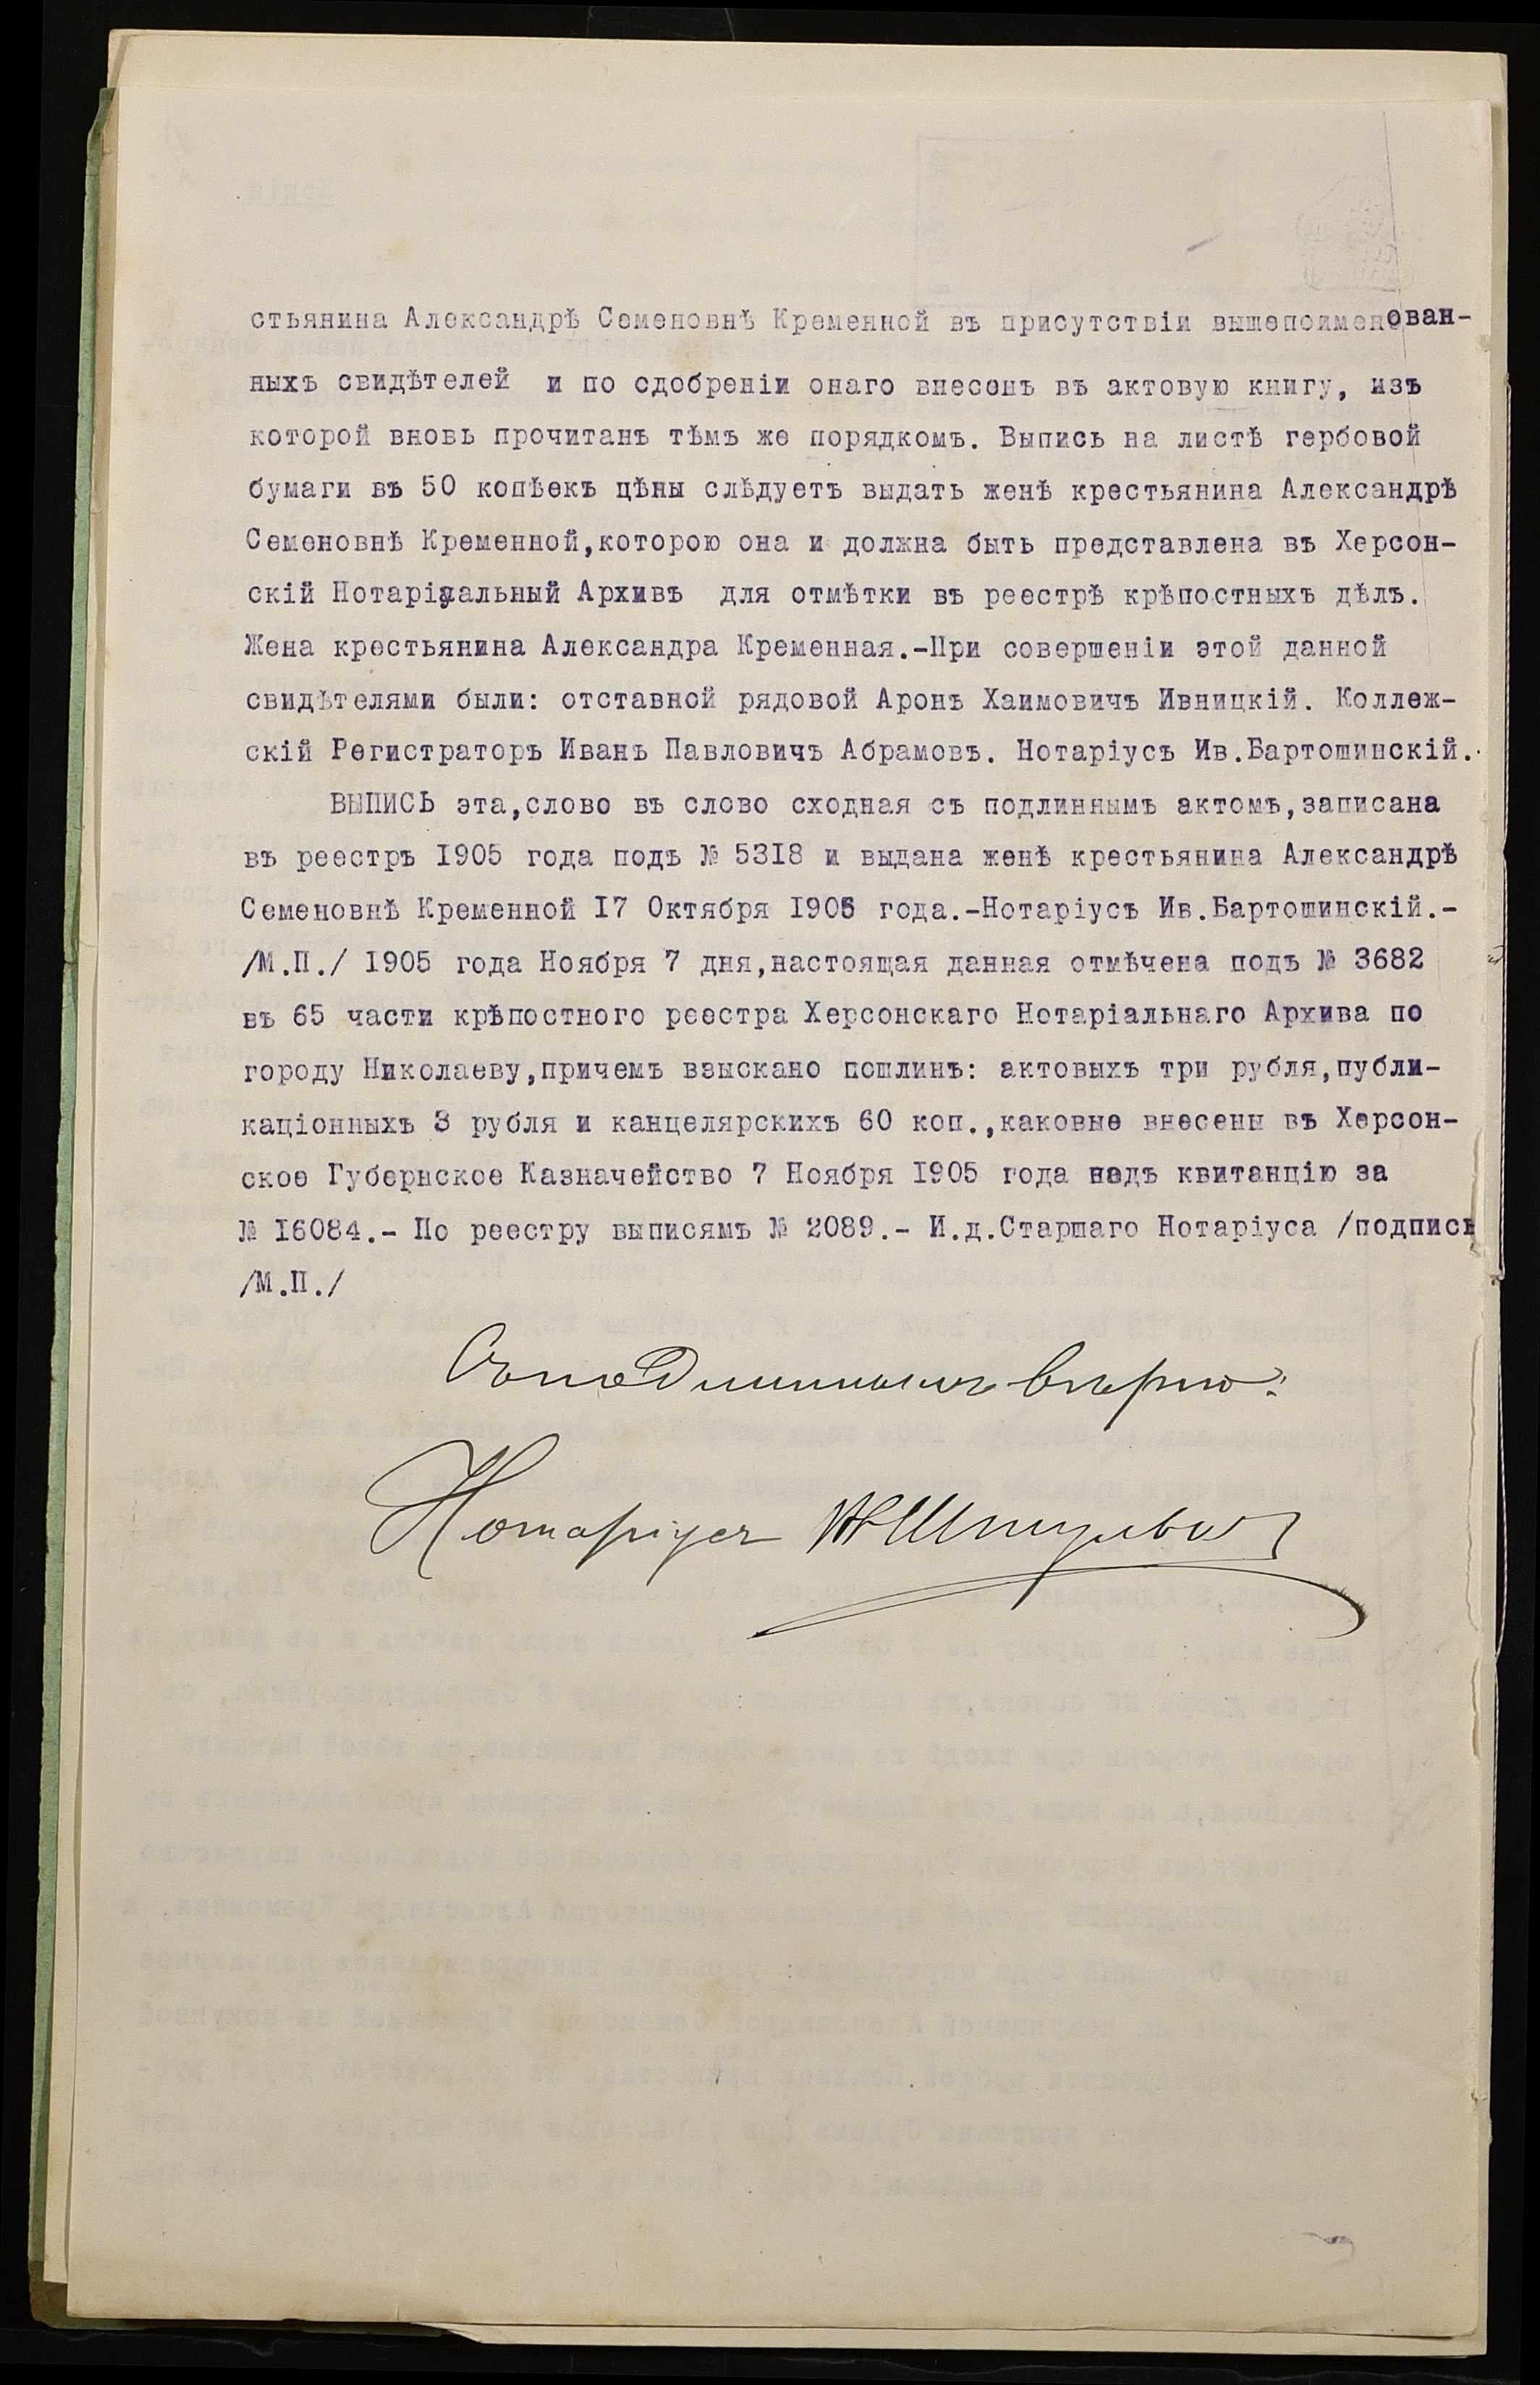 стьянина Александрѣ Семеновнѣ Кременной въ присутствіи вышепоименован-
ныхъ свидѣтелей и по сдобреніи онаго внесенъ въ актовую книгу, изъ
которой вновь прочитанъ тѣмъ же порядкомъ. Выпись на листѣ гербовой
бумаги въ 50 копѣекъ цѣны слѣдуетъ выдать женѣ крестьянина Александрѣ
Семеновнѣ Кременной,которою она и должна быть представлена въ Херсон-
скій Нотаріальный Архивъ для отмѣтки въ реестрѣ крѣпостныхъ дѣлъ.
Жена крестьянина Александра Кременная.-При совершеніи этой данной
свидѣтелями были: отставной рядовой Аронъ Хаимовичъ Ивницкій. Коллеж-
скій Регистраторъ Иванъ Павловичъ Абрамовъ. Нотаріусъ Ив.Бартошинскій.
ВЫПИСЬ эта,слово въ слово сходная съ подлиннымъ актомъ,записана
въ реестръ I905 года подъ № 53I8 и выдана женѣ крестьянина Александрѣ
Семеновнѣ Кременной I7 Октября I905 года.-Нотаріусъ Ив.Бартошинскій.-
/М.П./ I905 года Ноября 7 дня,настоящая данная отмѣчена подъ № 3682
въ 65 части крѣпостного реестра Херсонскаго Нотаріальнаго Архива по
городу Николаеву,причемъ взыскано пошлинъ: актовыхъ три рубля,публи-
каціонныхъ 3 рубля и канцелярскихъ 60 коп.,каковые внесены въ Херсон-
ское Губернское Казначейство 7 Ноября I905 года подъ квитанцію за
№ I6084.- По реестру выписямъ № 2089.- И.д.Старшаго Нотаріуса /подпись
/М.П./
Съ подлиннымъ вѣрно:
Нотаріусъ